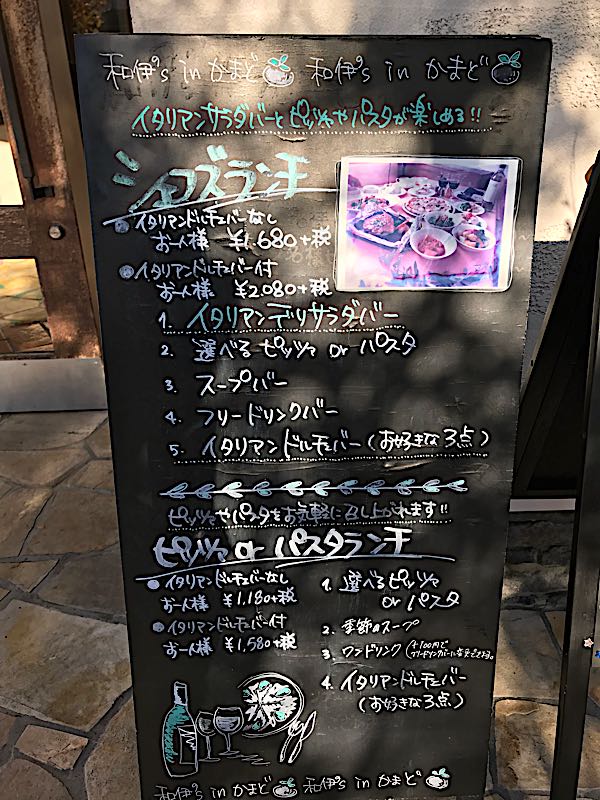 和伊's in かまど 和伊's in かまど
イタリアンサラダバーとピッツァやパスタが楽しめる!!
シェフズランチ
イタリアンドルチェバーなし
お一人様 ¥1,680+税
イタリアンドルチェバー付
お一人様 ¥2,080+税
1. イタリアンデリサラダバー
2. 選べる ピッツァ or パスタ
3. スープバー
4. フリードリンクバー
5. イタリアンドルチェバー(お好きな3点)
ピッツァやパスタをお気軽に召し上がれます!!
ピッツァ or パスタランチ
イタリアンドルチェバーなし
お一人様 ¥1,180+税
イタリアンドルチェバー付
お一人様 ¥1,580+税
1. 選べるピッツァ
or パスタ
2. 季節のスープ
3. ワンドリンク (+100円で
フリードリンクバーに変更できます。)
4. イタリアンドルチェバー
(お好きな3点)
和伊's in かまど 和伊's in かまど